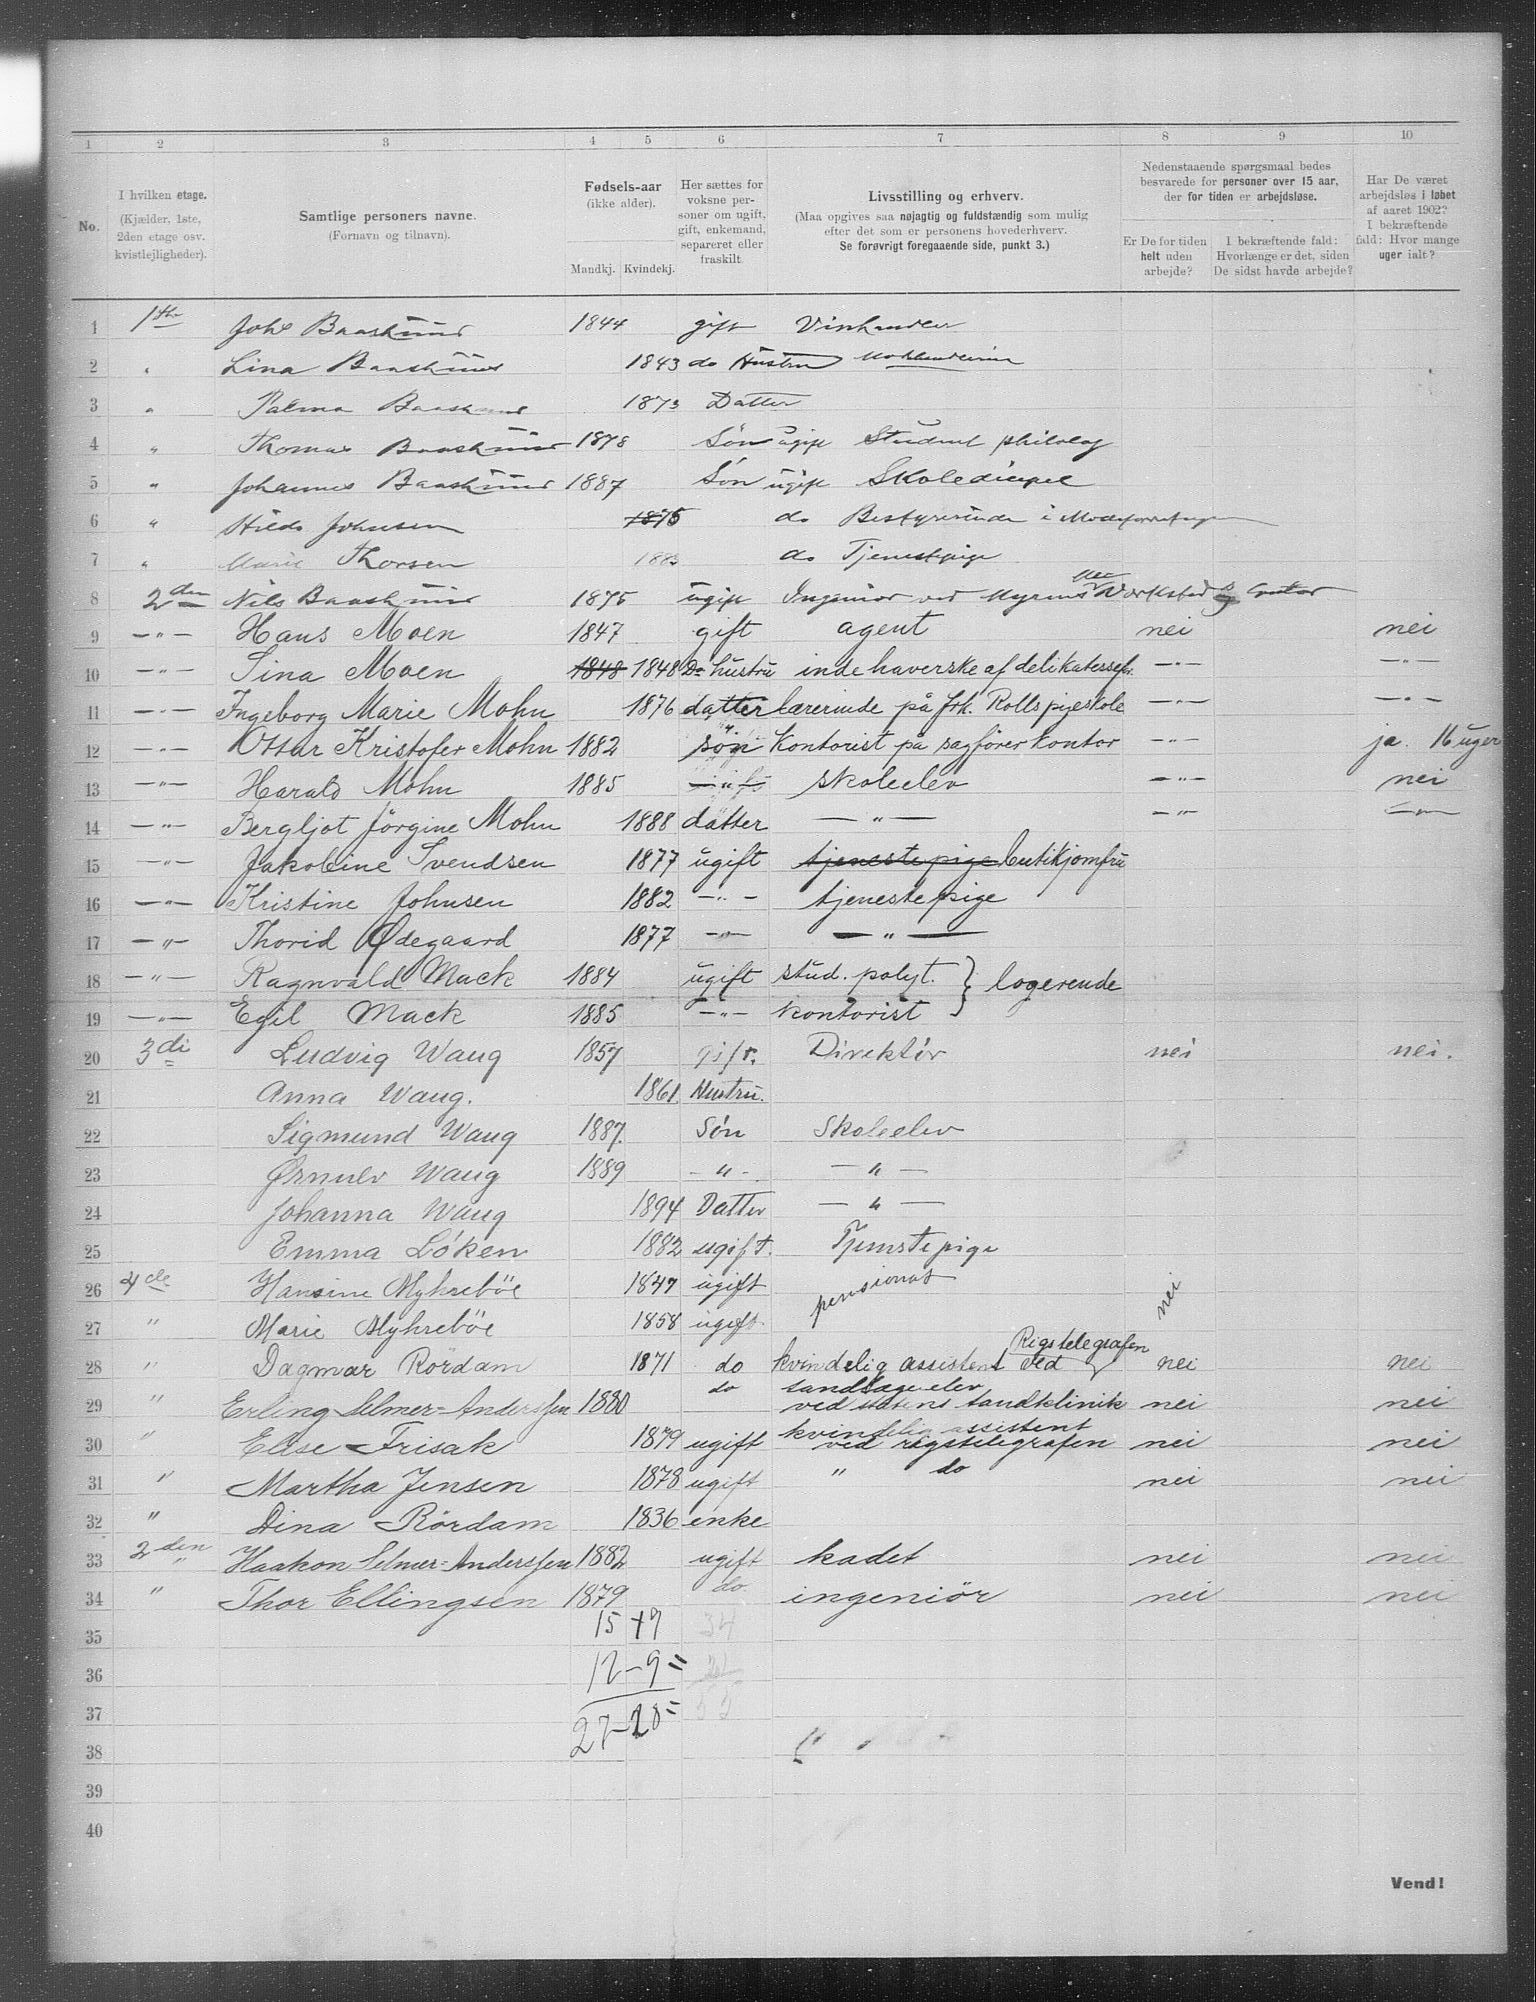 1 2 3 4 5 6 7 8 9 10
No.
I hvilken etage.
(Kjælder, 1ste,
2den etage osv.
kvistlejligheder).
Samtlige personers navne.
(Fornavn og tilnavn).
Fødsels-aar
(ikke alder).
Mandkj. Kvindekj.
Her sættes for
voksne per-
soner om ugift,
gift, enkemand,
separeret eller
fraskilt.
Livsstilling og erhverv.
(Maa opgives saa nøjagtig og fuldstændig som mulig
efter det som er personens hovederhverv.
Se forøvrigt foregaaende side, punkt 3.)
Nedenstaaende spørgsmaal bedes
besvarede for personer over 15 aar,
der for tiden er arbejdsløse.
Er De for tiden
helt uden
arbejde?
I bekræftende fald:
Hvorlænge er det, siden
De sidst havde arbejde?
Har De været
arbejdsløs i løbet
af aaret 1902?
I bekræftende
fald: Hvor mange
uger ialt?
1 1ste 1844 gift Vinhandler
2 " Lina 1843 do Hustru
3 " Palma 1873 Datter
4 " Thomas 1878 Søn ugift Student philolog
5 " Johannes 1887 Søn ugift Skoledicipel
6 " Hilda Johnsen 1875 do Bestyrerinde i
7 " Marie Thorsen 1883 do Tjenestepige
8 2den Nils 1875 ugift Ingeniør ved Myrens Værksted
9 —"— Hans Moen 1847 gift agent nei nei
10 —"— Sina Moen 1848 1848 Do hustru indehaverske af delikatessefor. —"— —"—
11 —"— Ingeborg Marie Mohn 1876 datter lærerinde på frk. Rolls pigeskole —"— —"—
12 —"— Ottar Kristofer Mohn 1882 søn kontorist på sagførerkontor —"— ja. 16 uger
13 —"— Harald Mohn 1885 —"— skoleelev —"— nei
14 —"— Bergljot Jörgine Mohn 1888 datter —"— —"— —"—
15 —"— Jakobine Svendsen 1877 ugift tjenestepige butikjomfru
16 —"— Kristine Johnsen 1882 —"— tjenestepige
17 —"— Thorid Ødegaard 1877 —"— —"—
18 —"— Ragnvald Mack 1884 ugift stud. polyt. } logerende
19 —"— Egil Mack 1885 —"— kontorist
20 3di Ludvig Waug 1857 gift. Direktör nei nei.
21 Anna Waug. 1861. Hustru.
22 Sigmund Waug 1887. Søn Skoleelev
23 Ørnulv Waug 1889 —"— —"—
24 Johanna Waug 1894 Datter —"—
25 Emma Löken 1882 ugift. Tjenstepige
26 4de Hansine Myhreböe 1847 ugift pensionat nei
27 " Marie Myhreböe 1858 ugift.
28 " Dagmar Rördam 1871 do kvindelig assistent ved Rigstelegrafen nei nei
29 " Erling Selmer-Anderssen 1880 do tandlægeelev
ved statens tandklinik nei nei
30 " Elise Frisak 1879 ugift kvindelig assistent
ved rigstelegrafen nei nei
31 " Martha Jensen 1878 ugift " do nei nei
32 " Dina Rördam 1836 enke
33 2den " Haakon Selmer-Anderssen 1882 ugift kadet nei nei
34 " Thor Ellingsen 1879 do ingeniör nei nei
35 15 + 9 34
36 12 – 9 = 21
37 27 – 28 = 55
38
39
40
Vend!